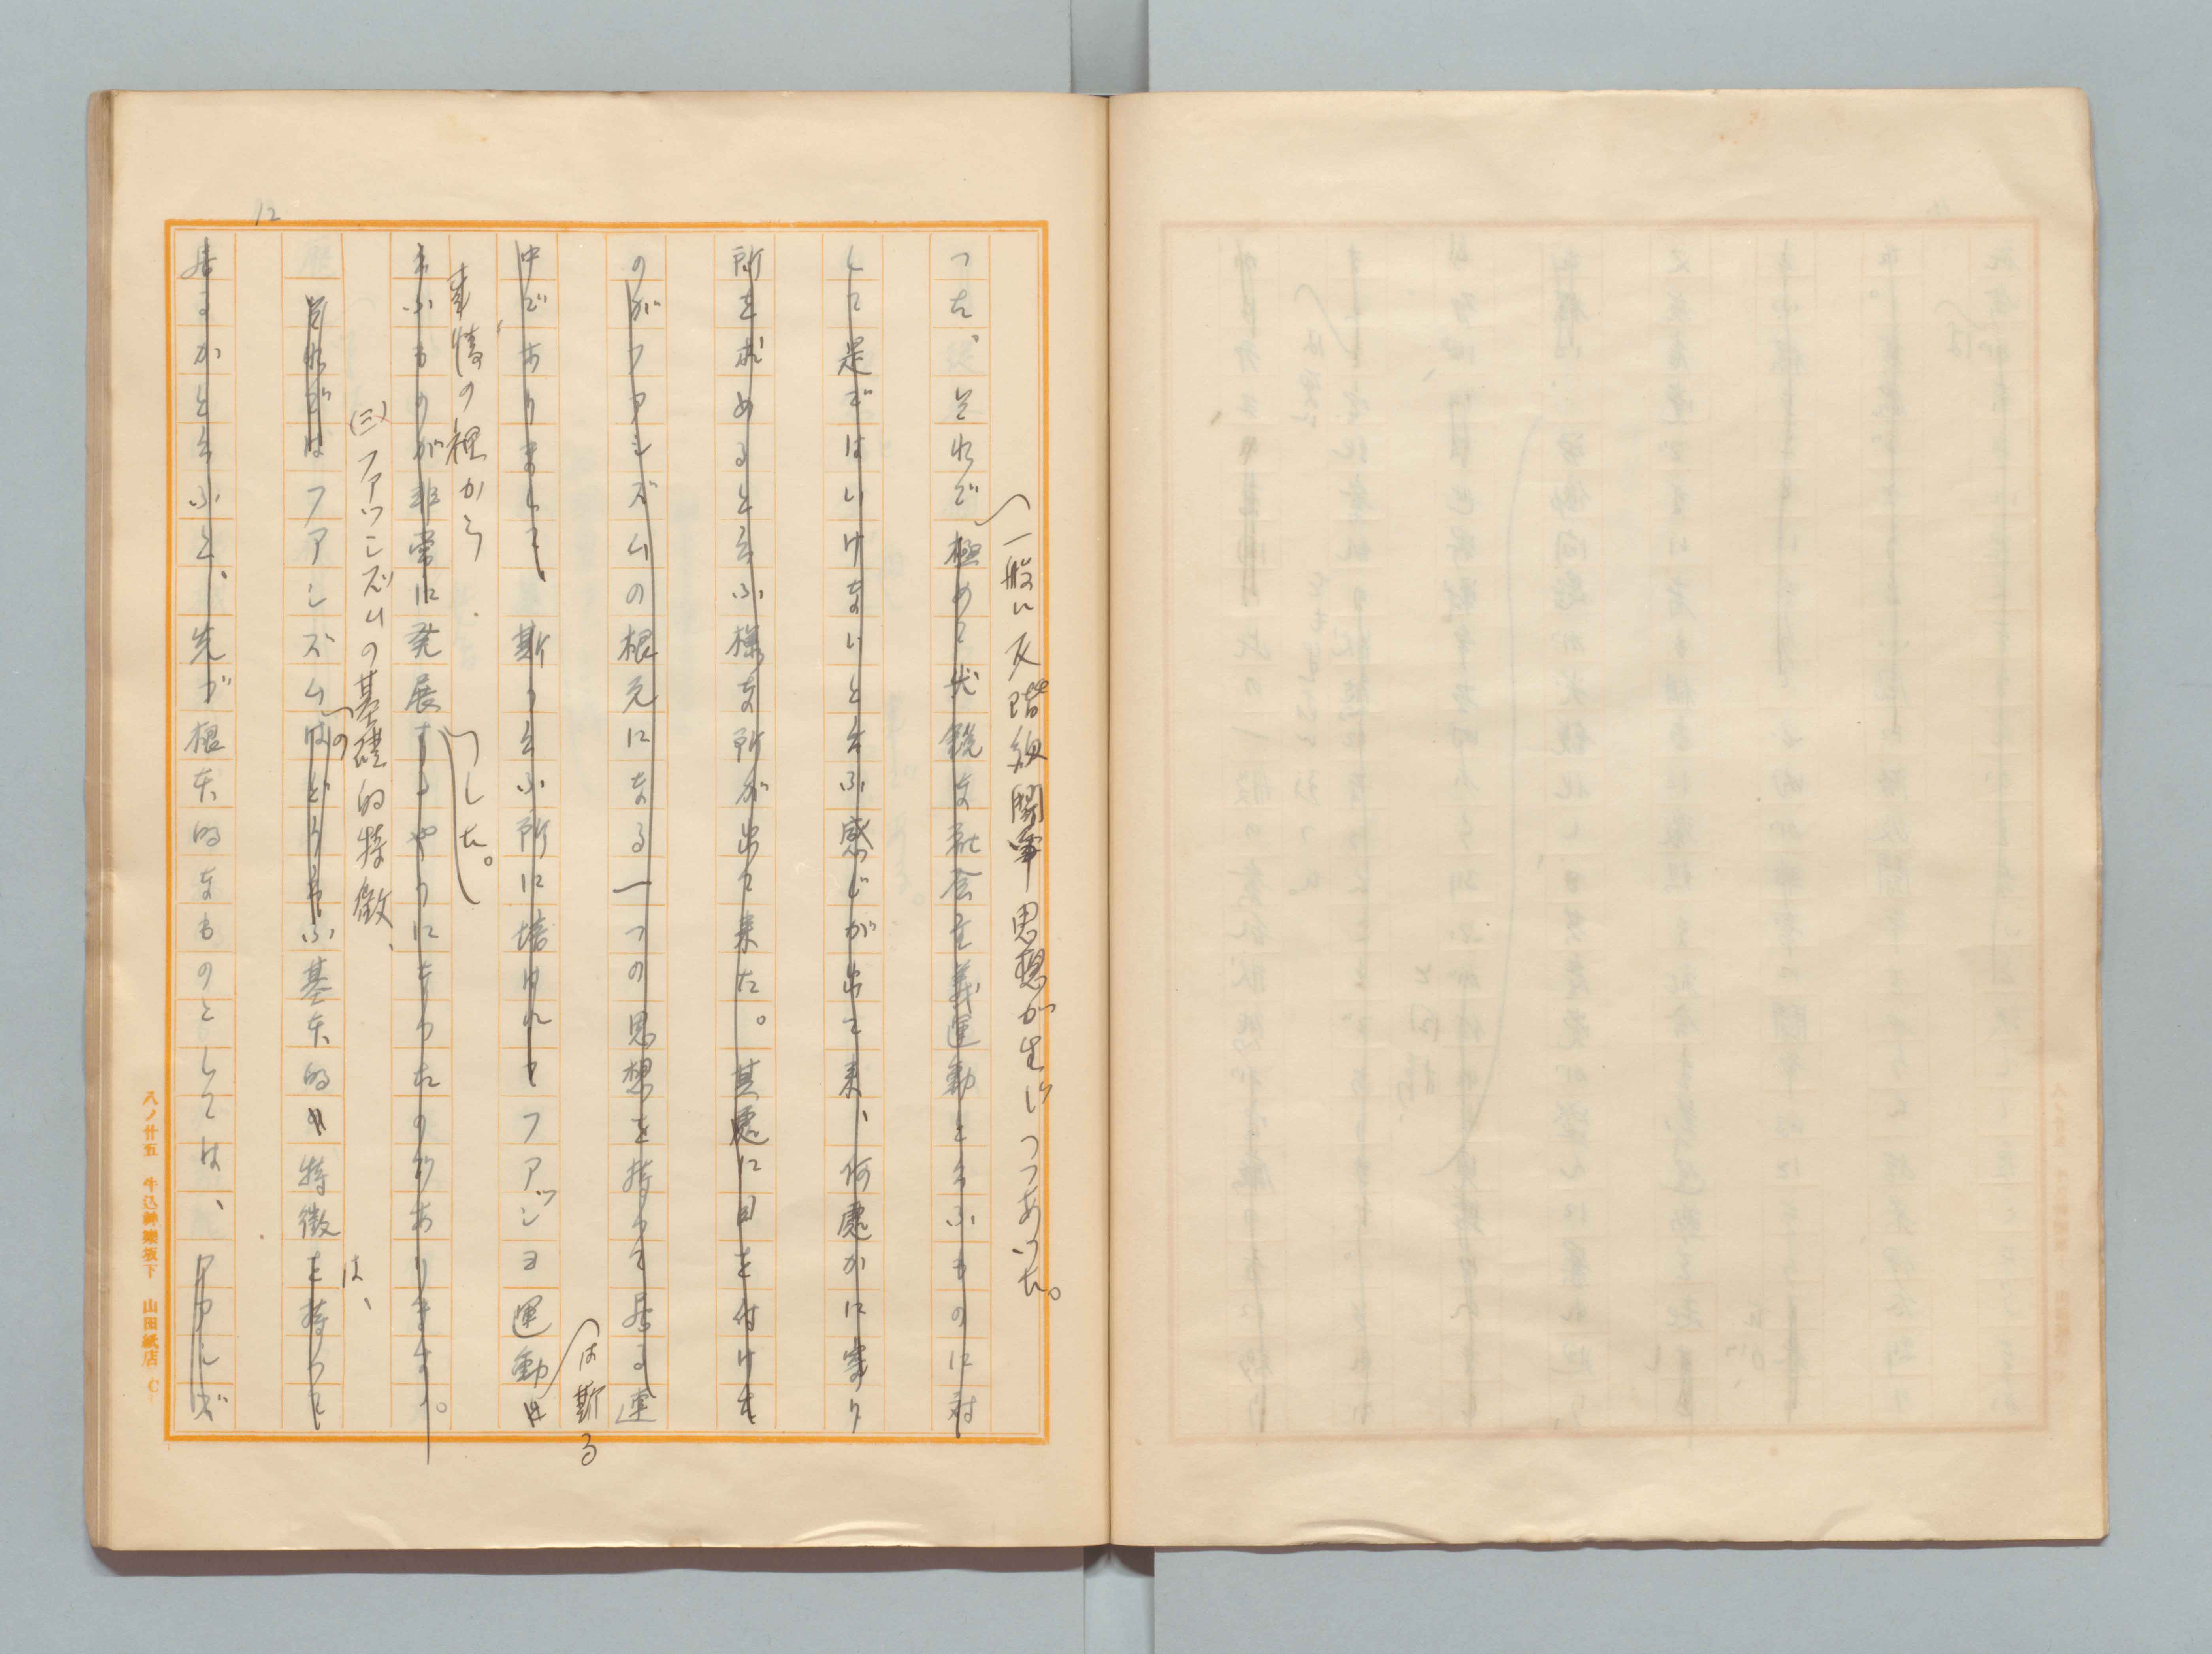 12
一般に反階級闘争思想が生じつつあつた。
つた、それで極めて尖鋭な社会主義運動と云ふものに対
して是ではいけないと云ふ感じが出て来、何處かに寄り
所を求めると云ふ様な所が出て来た。其處に目を付けた
のがフアシズムの根元になる一つの思想を持つて居る連
は斯る
中でありまして、斯う云ふ所に培はれてフアッシヨ運動は
事情の裡から
云ふものが非常に発展するやうになつたのであります。
つした。
(三)フアッシズムの基礎的特徴、
それではフアシズムはどう云ふ基本的な特徴を持つて
の
は、
居るかと云ふと、先づ根本的なものとしては、フアシズ
八ノ廿五 牛込神樂坂下 山田紙店 C